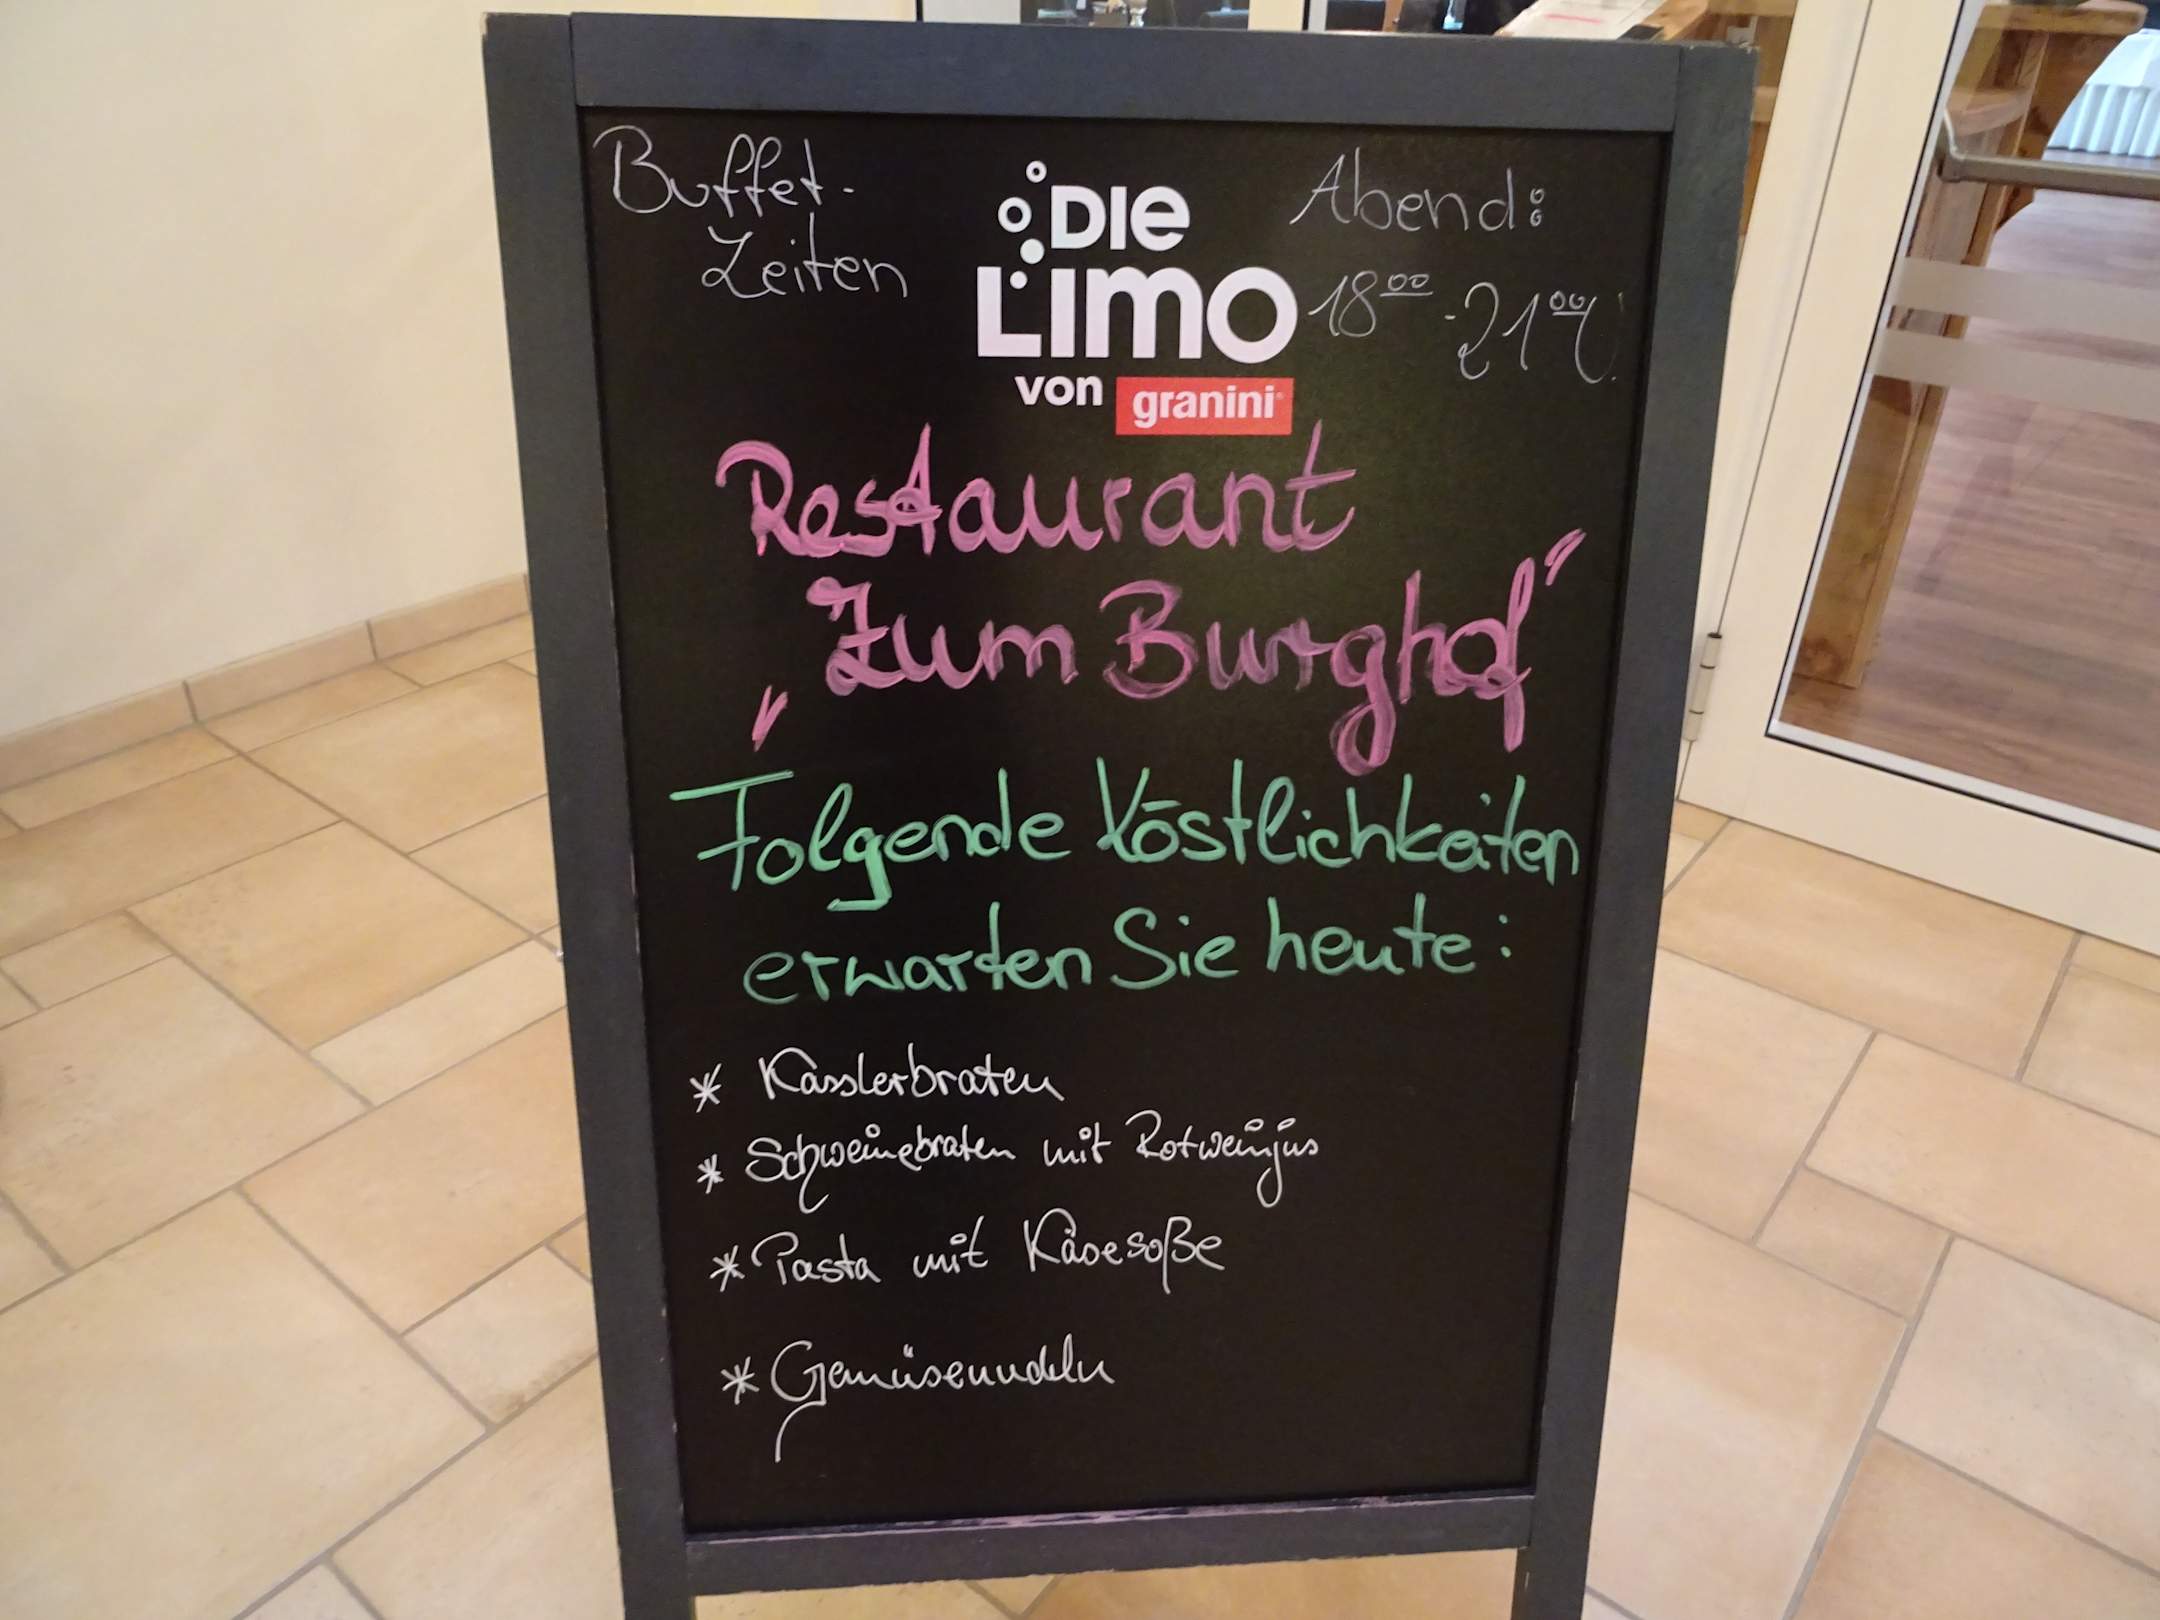 Buffet-
Zeiten
DIE
LIMO
von granini
Abend:
18⁰⁰ - 21⁰⁰
Restaurant
„Zum Burghof"
Folgende Köstlichkeiten
erwarten Sie heute:
* Kasslerbraten
* Schweinebraten mit Rotweinjus
* Pasta mit Käsesoße
* Gemüsenudeln